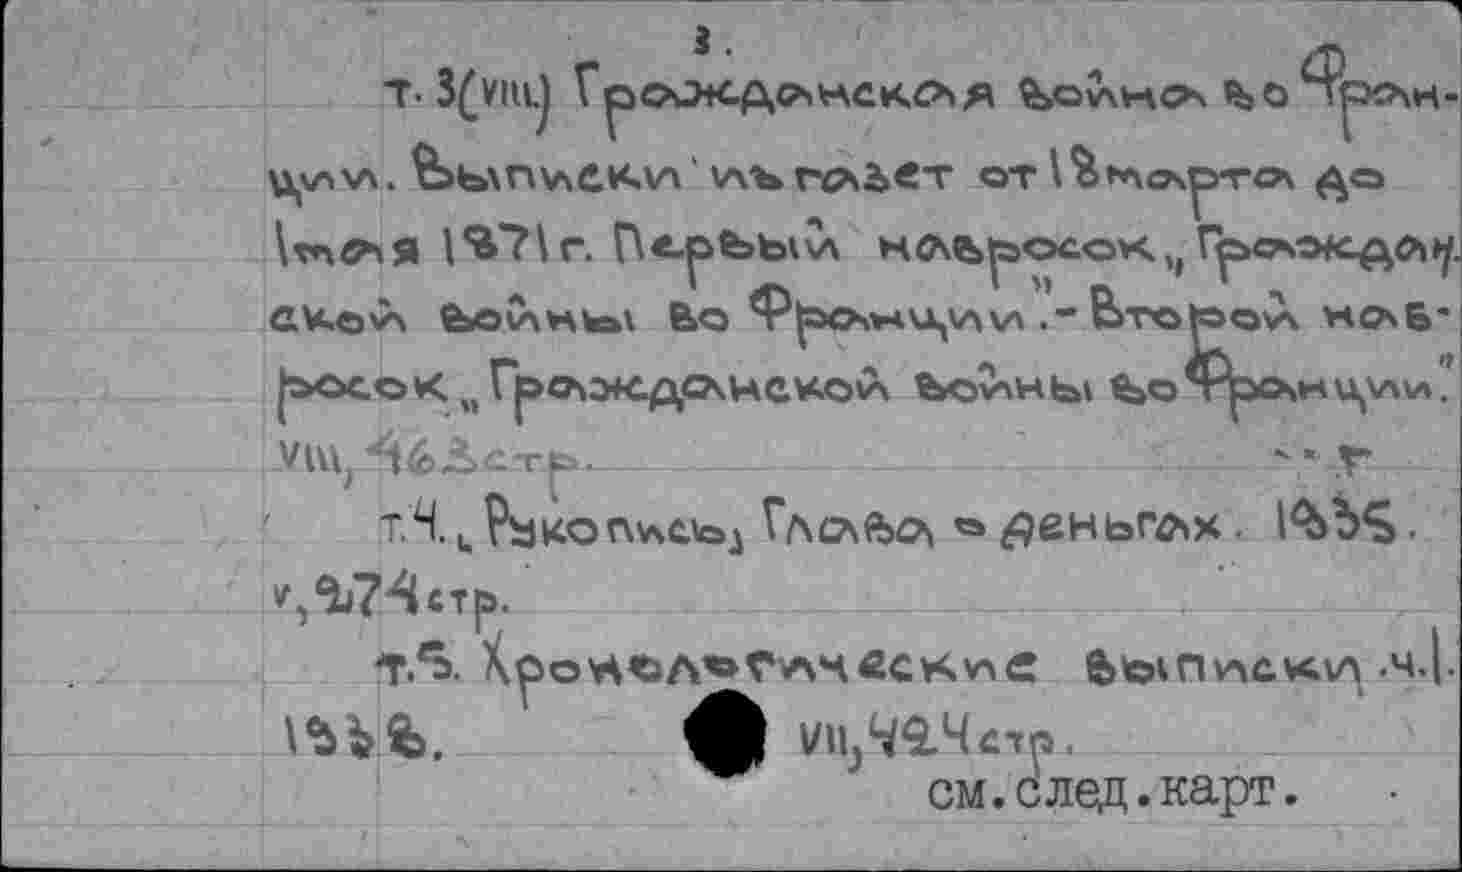 3.
т. 3(VIII.) Гражданская война во Фран-
ции. Выписки из газет от 18 марта до
1 мая 1871 г. Первый набросок „Граждан.
ской войны во Франции".- Второй наб-
росок „Гражданской войны во Франции".
VIII, 463 стр.
т.4. „Рукопись, Глава о деньгах. 1935.
V, 274 стр.
т.5. Хронологические выписки ч.I.
1938. VII, 424 стр.
см.след.карт.